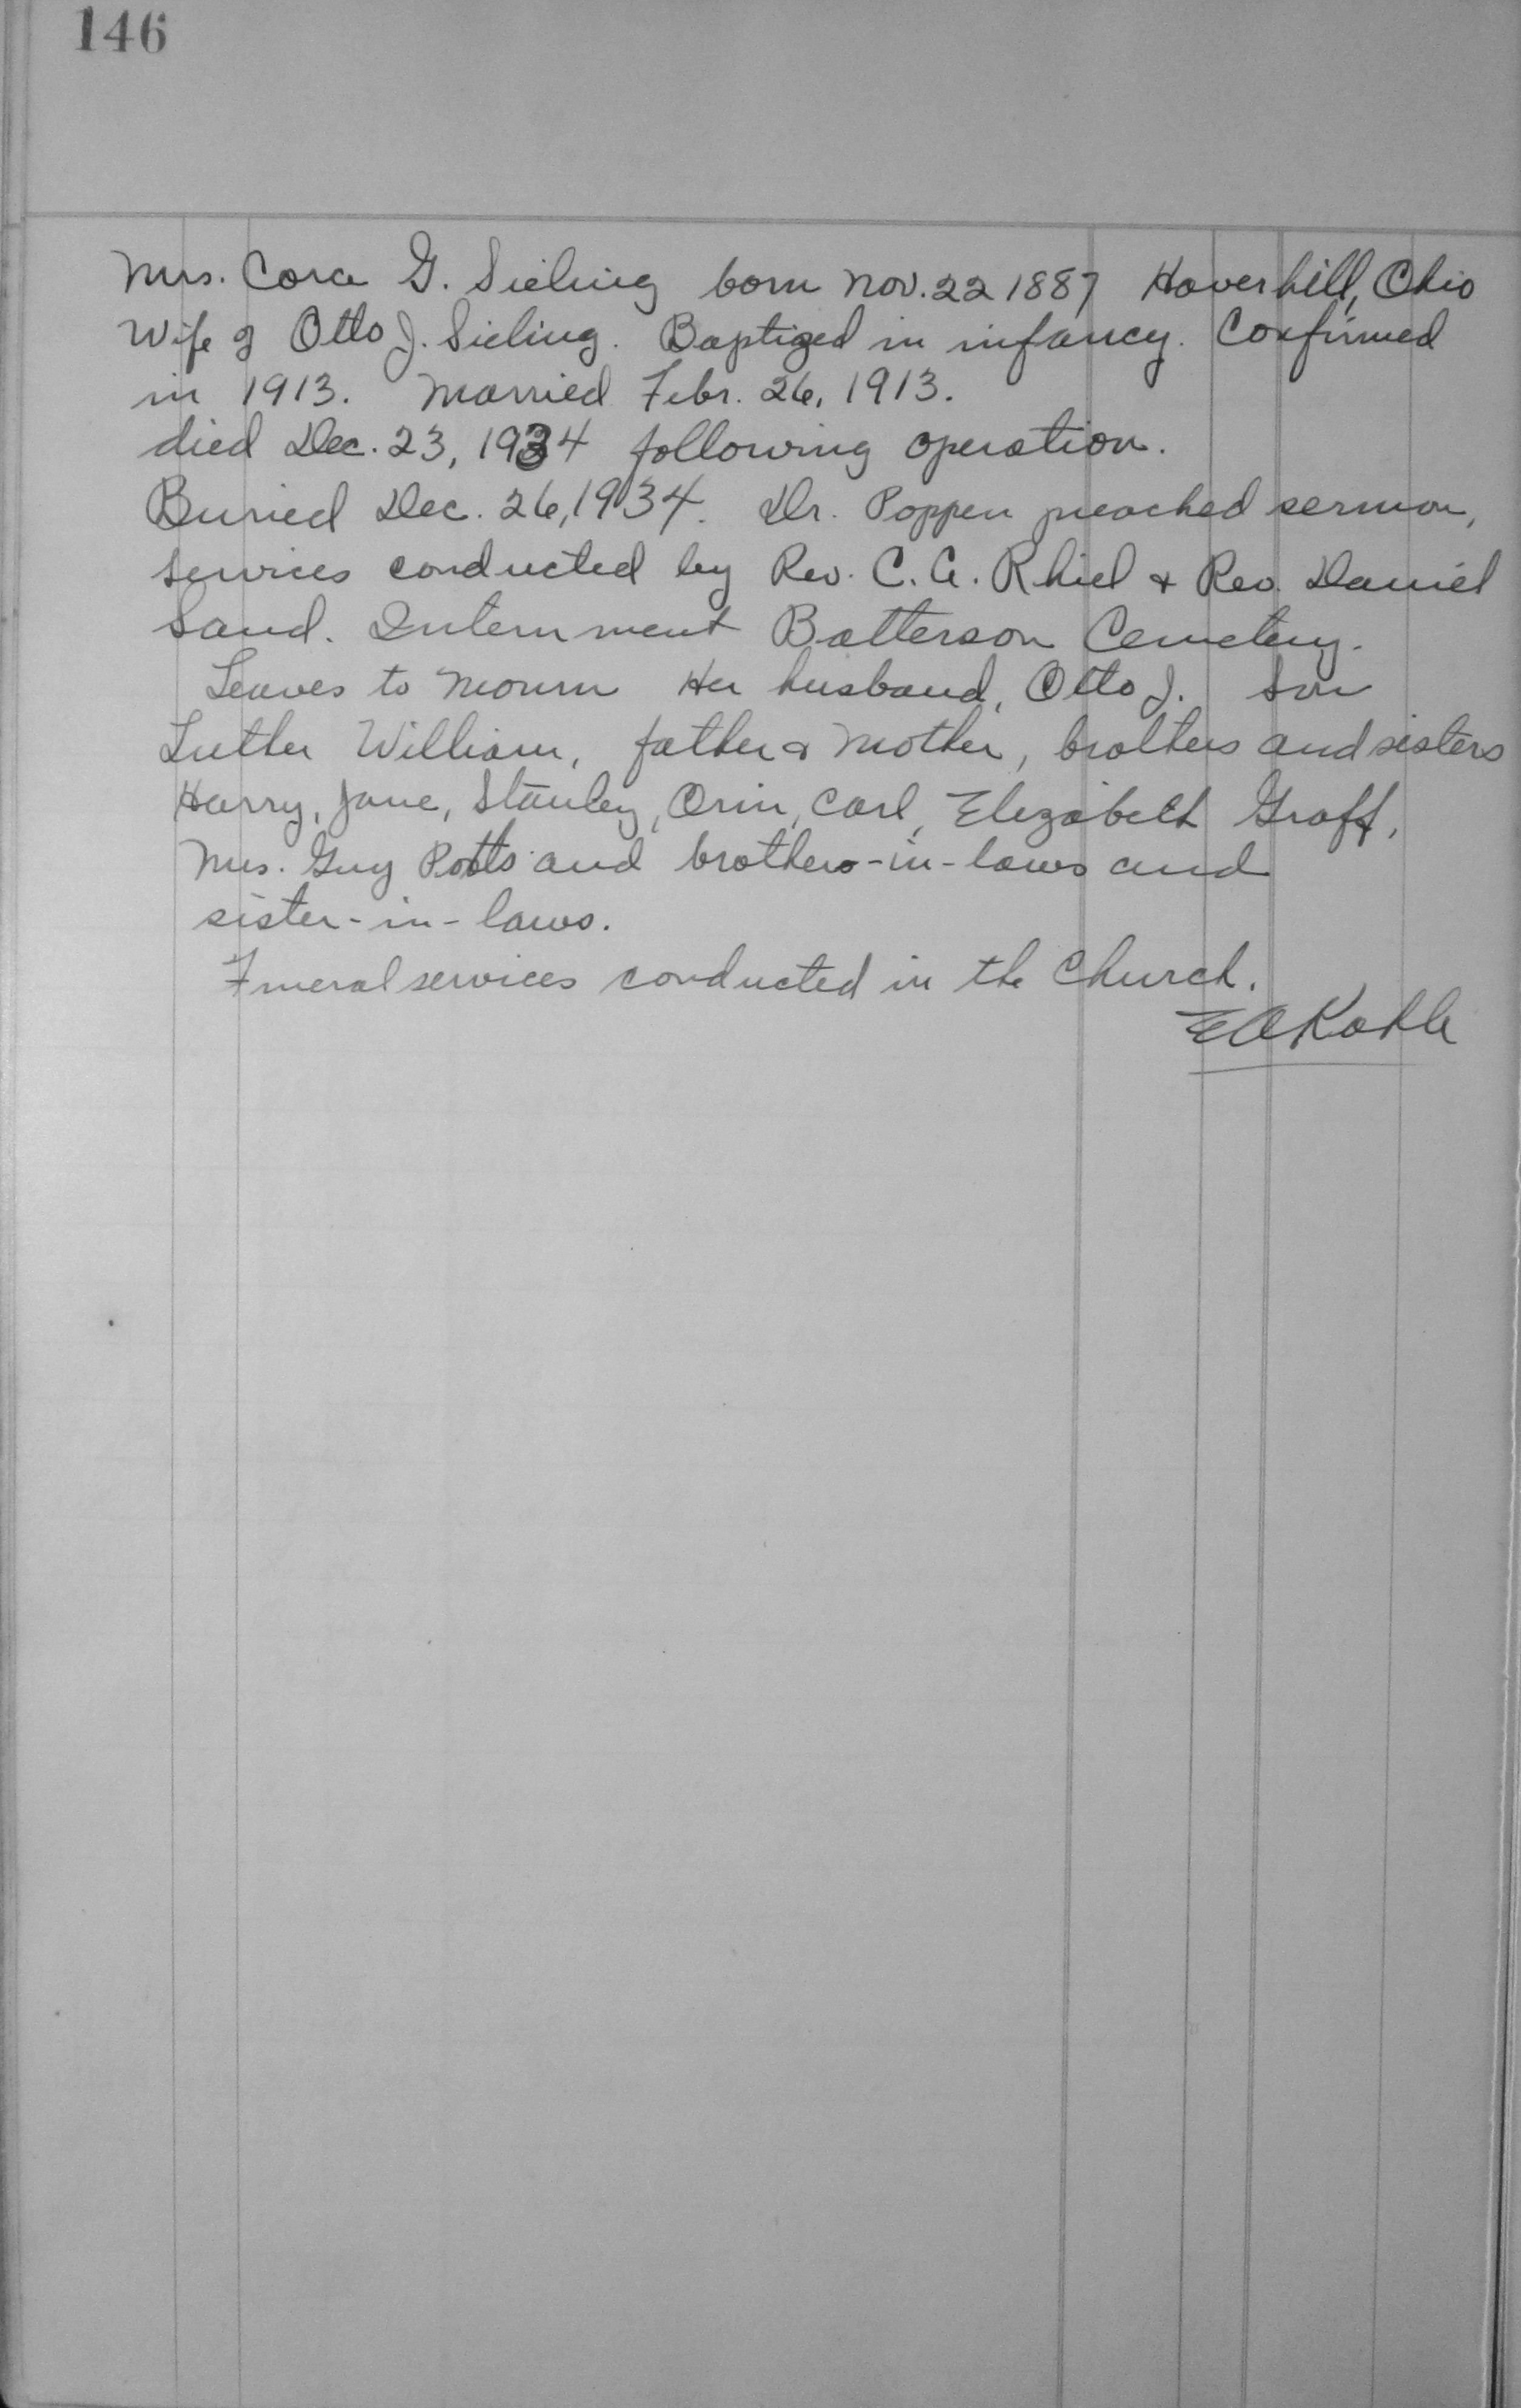 146
Mrs. Cora G. Sieling born Nov. 22 1887 Haverhill, Ohio
Wife of Otto J. Sieling. Baptized in infancy. Confirmed
in 1913. Married Febr. 26, 1913.
died Dec. 23, 1934 following operation.
Buried Dec. 26, 1934. Dr. Poppen preached sermon,
services conducted by Rev. C. A. Rhiel & Rev. Daniel
Sand. Internment Batterson Cemetery.
Leaves to mourn Her husband, Otto J. Son
Luther William, father & Mother, brothers and sisters
Harry, Jane, Stanley, Orin, Carl, Elizabeth Graff,
Mrs. Guy Potts and brothers-in-laws and
sister-in-laws.
Funeral services conducted in the Church.